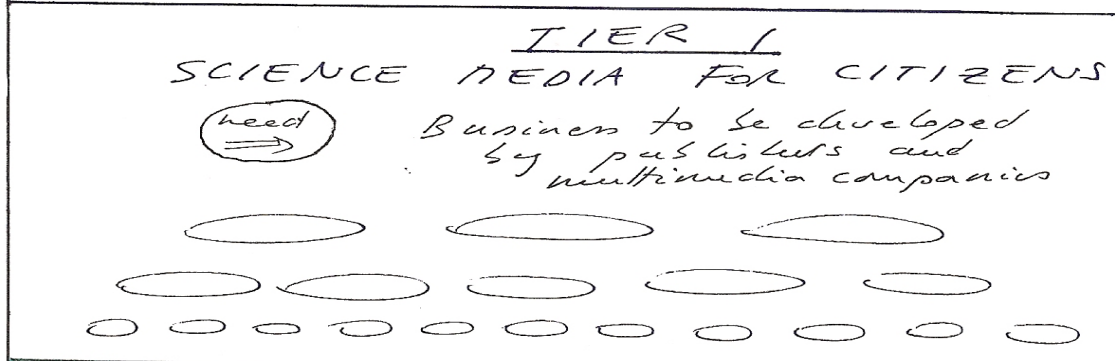 TIER 1
SCIENCE MEDIA FOR CITIZENS
need
Business to be developed
by publishers and
multimedia companies